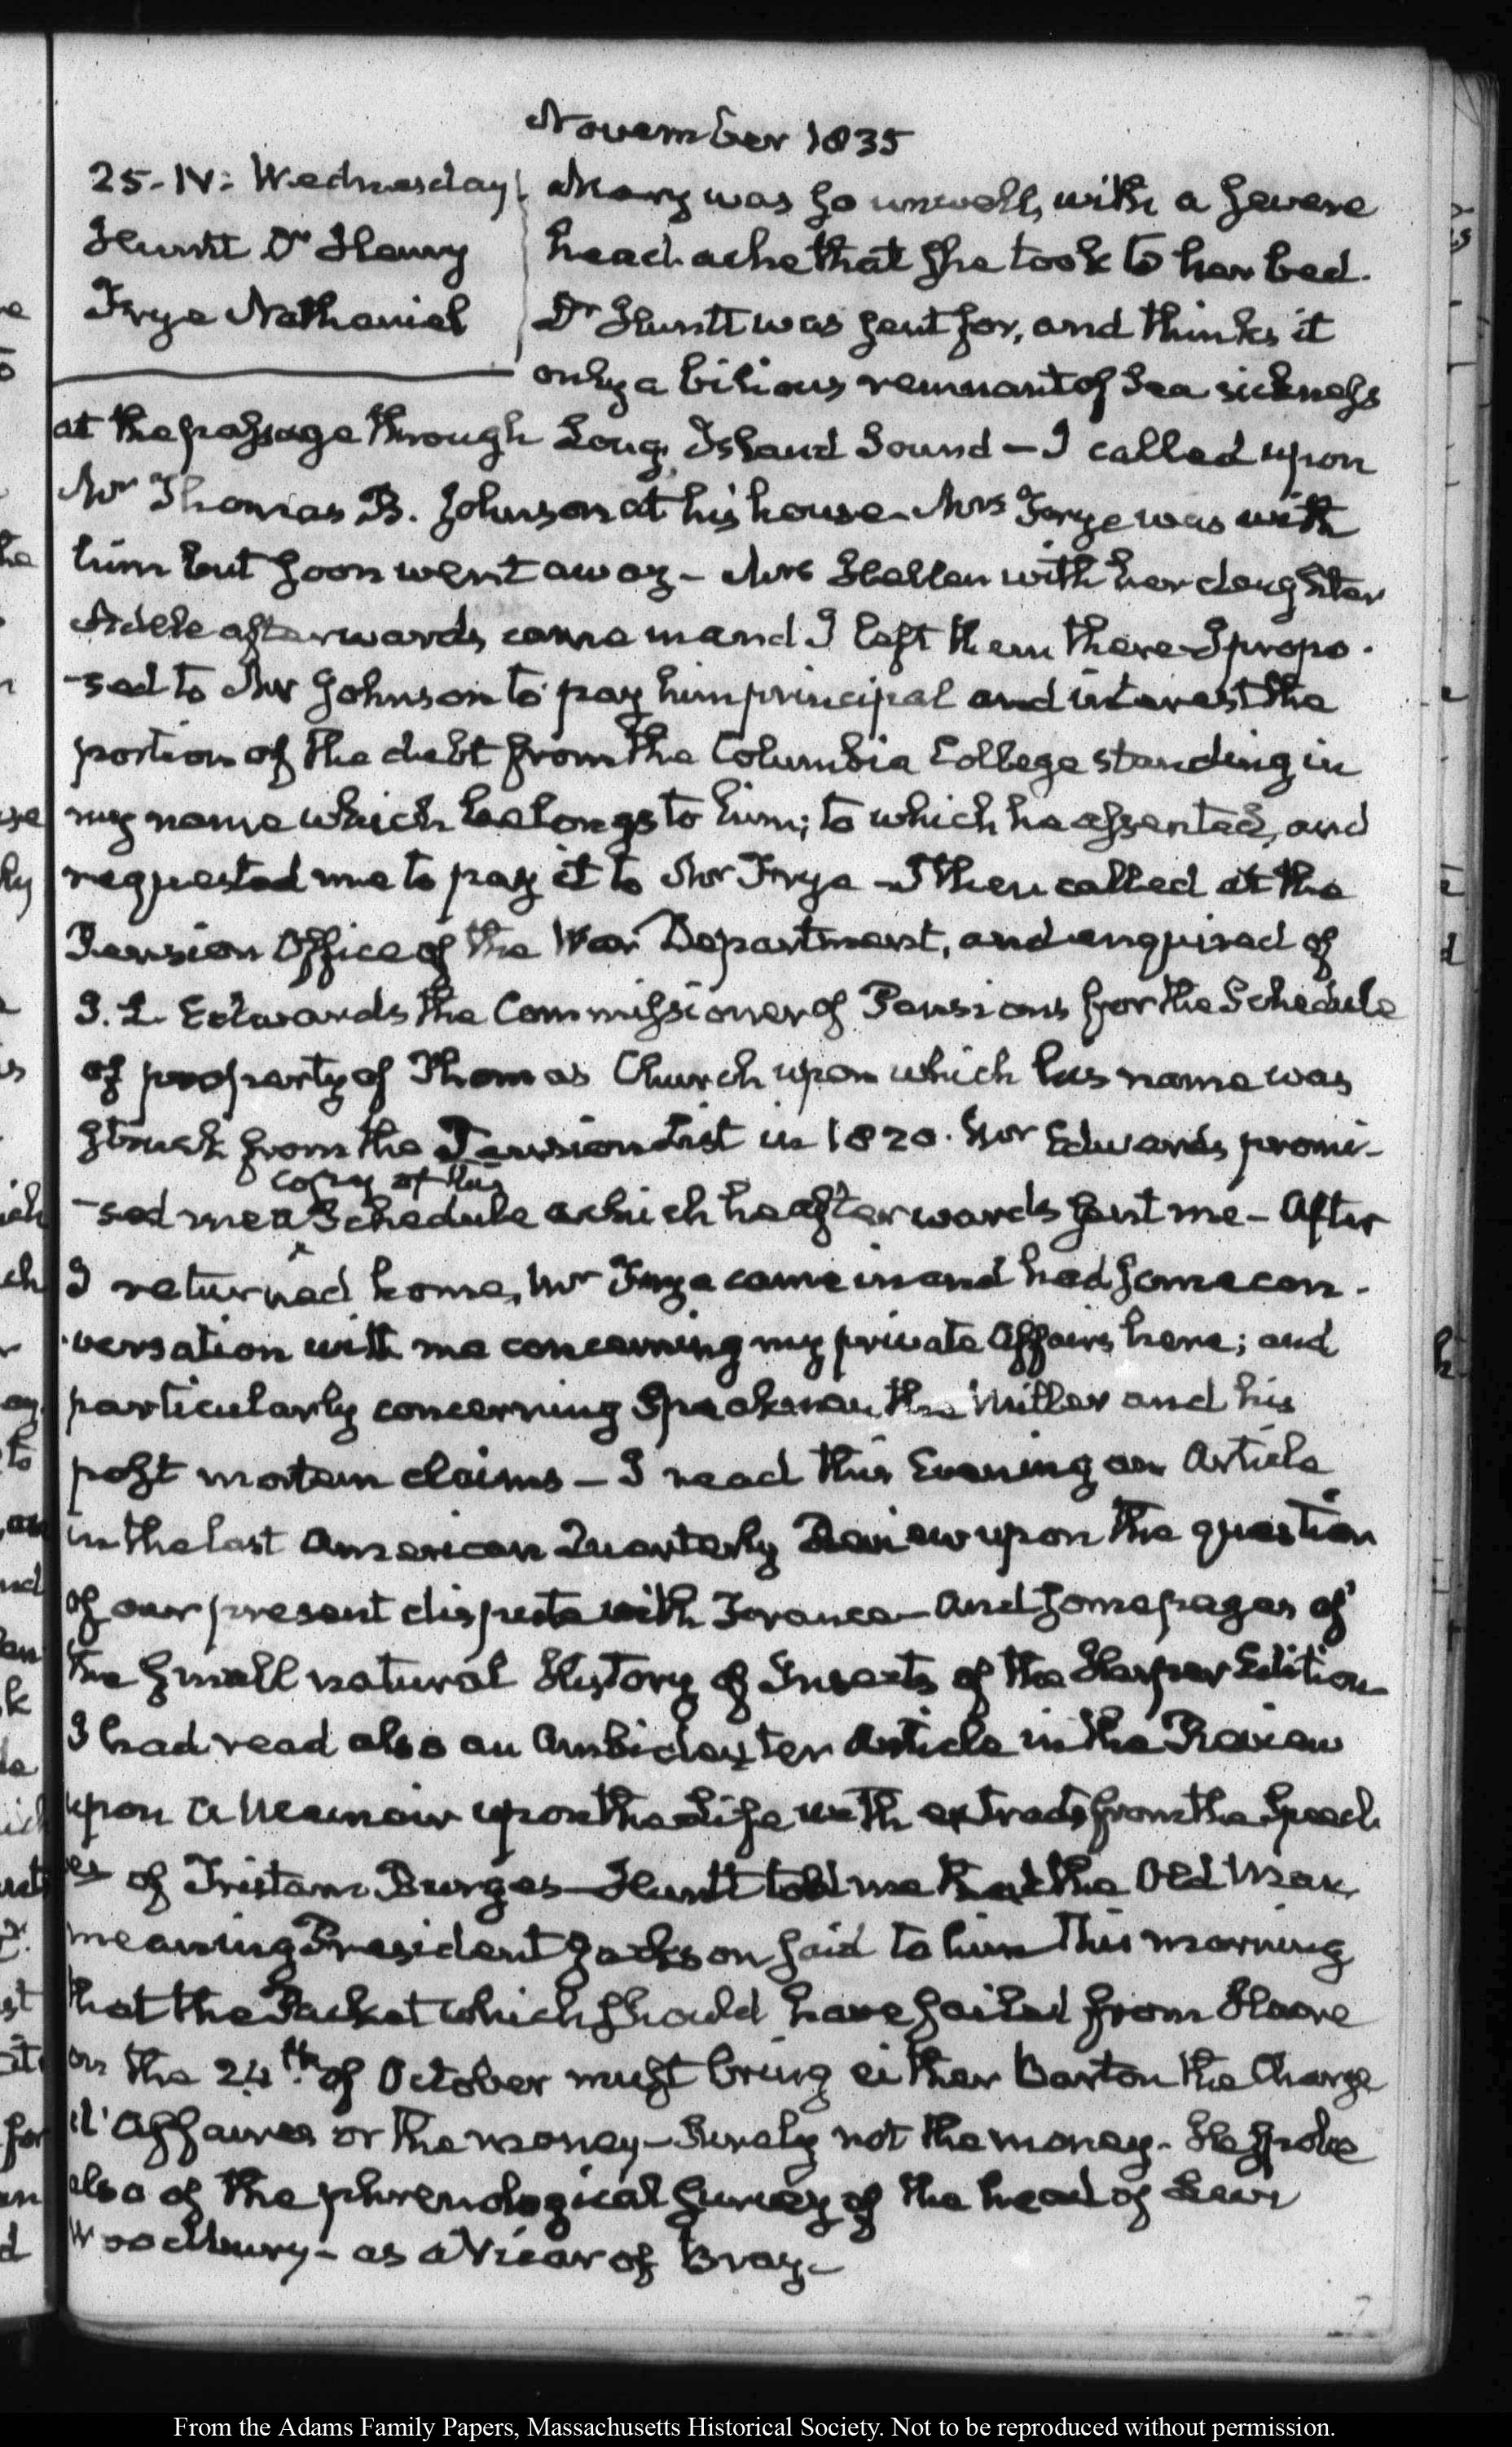 November 1835
25. IV: Wednesday
Huntt Dr Henry
Frye Nathaniel
Mary was so unwell, with a severe
head-ache that she took to her bed.
Dr Huntt was sent for, and thinks it
only a bilious remnant of Sea sickness
at the passage through Long Island Sound — I called upon
Mr Thomas B. Johnson at his house. Mrs Frye was with
him but soon went away — Mrs Hellen with her daughter
Adele afterwards came in and I left them there. I propo-
-sed to Mr Johnson to pay him principal and interest the
portion of the debt from the Columbia College standing in
my name which belongs to him; to which he assented, and
requested me to pay it to Mr Frye — I then called at the
Pension Office of the War Department, and enquired of
J. L. Edwards the Commissioner of Pensions for the Schedule
of property of Thomas Church upon which his name was
struck from the Pension List in 1820. Mr Edwards promi-
copy of this
-sed me a Schedule which he afterwards sent me — After
I returned home, Mr Frye came in and had some con-
-versation with me concerning my private Affairs here; and
particularly concerning Speakman the Miller and his
post mortem claims — I read this Evening an Article
in the last American Quarterly Review upon the question
of our present dispute with France — and some pages of
the small natural History of Insects of the Harper Edition
I had read also an Ambidexter Article in the Review
upon a Memoir upon the Life with extracts from the Speech
es of Tristam Burges — Huntt told me that the Old Man,
meaning President Jackson said to him this morning
that the Packet which should have sailed from Havre
on the 24th. of October must bring either Barton the Charge
d'Affaires or the money — Surely not the money. He spoke
also of the phrenological survey of the head of Levi
Woodbury — as a Vicar of Bray —
From the Adams Family Papers, Massachusetts Historical Society. Not to be reproduced without permission.